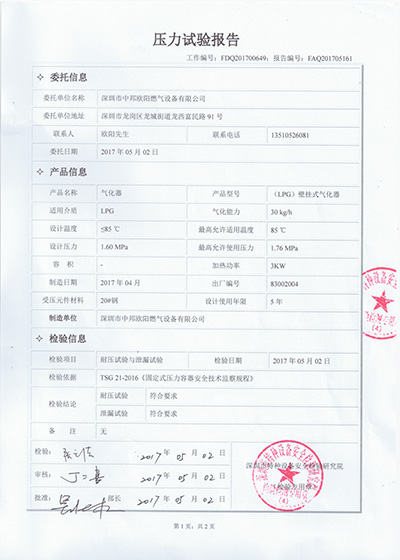 压力试验报告
工作编号：FDQ201700649；报告编号：FAQ201705161
委托信息
委托单位名称 深圳市中邦欧阳燃气设备有限公司
委托单位地址 深圳市龙岗区龙城街道龙西富民路 91 号
联系人 欧阳先生 联系电话 13510526081
委托日期 2017 年 05 月 02 日
产品信息
产品名称 气化器 产品型号 （LPG）壁挂式气化器
适用介质 LPG 气化能力 30 kg/h
设计温度 ≤85 ℃ 最高允许适用温度 85 ℃
设计压力 1.60 MPa 最高允许使用压力 1.76 MPa
容 积 - 加热功率 3KW
制造日期 2017 年 04 月 出厂编号 83002004
受压元件材料 20#钢 设计使用年限 5 年
制造单位 深圳市中邦欧阳燃气设备有限公司
检验信息
检验项目 耐压试验与泄漏试验 检验日期 2017 年 05 月 02 日
检验依据 TSG 21-2016《固定式压力容器安全技术监察规程》
检验结论 耐压试验 符合要求
泄漏试验 符合要求
备 注 无
检验： 2017 年 05 月 02 日
审核： 2017 年 05 月 02 日
批准： 部长 2017 年 05 月 02 日
深圳市特种设备安全检验研究院
（检验专用章）
(4)
(4)
第 1 页；共 2 页